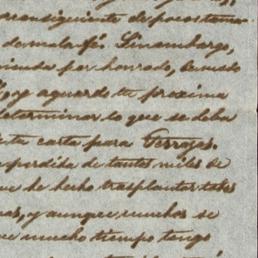 consiguiente de pocos toma
de mala fé. Sin embargo,
por honrado,
y aguardo tu proxima
determinar lo que se deba
esta carta para Terrazas.
perdida de tantos miles de
que he hecho trasplantar tales
y aunque muchos se
que mucho tiempo tengo